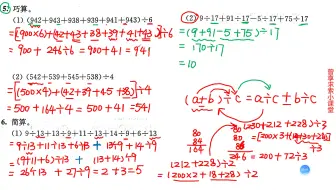 5. 巧算。
(1) (942+943+938+939+941+943)÷6
=[900×6)+(42+43+38+39+41+43)]÷6
=900+246÷6=900+41=941
(2) (542+539+545+538)÷4
=[500×4)+(42+39+45+38)]÷4
=500+164÷4=500+41=541
6. 简算。
(1) 9÷13+13÷9+11÷13+14÷9+6÷13
=9÷13+11÷13+6÷13+13÷9+14÷9
=(9+11+6)÷13+(13+14)÷9
=26÷13+27÷9=2+3=5
(2) 79÷17+91÷17-5÷17+75÷17
=170÷17
=10
(a±b)÷c=a÷c±b÷c
80
84
164
=200+72÷3
(212+228)÷2
=(200×2+18+28)÷2